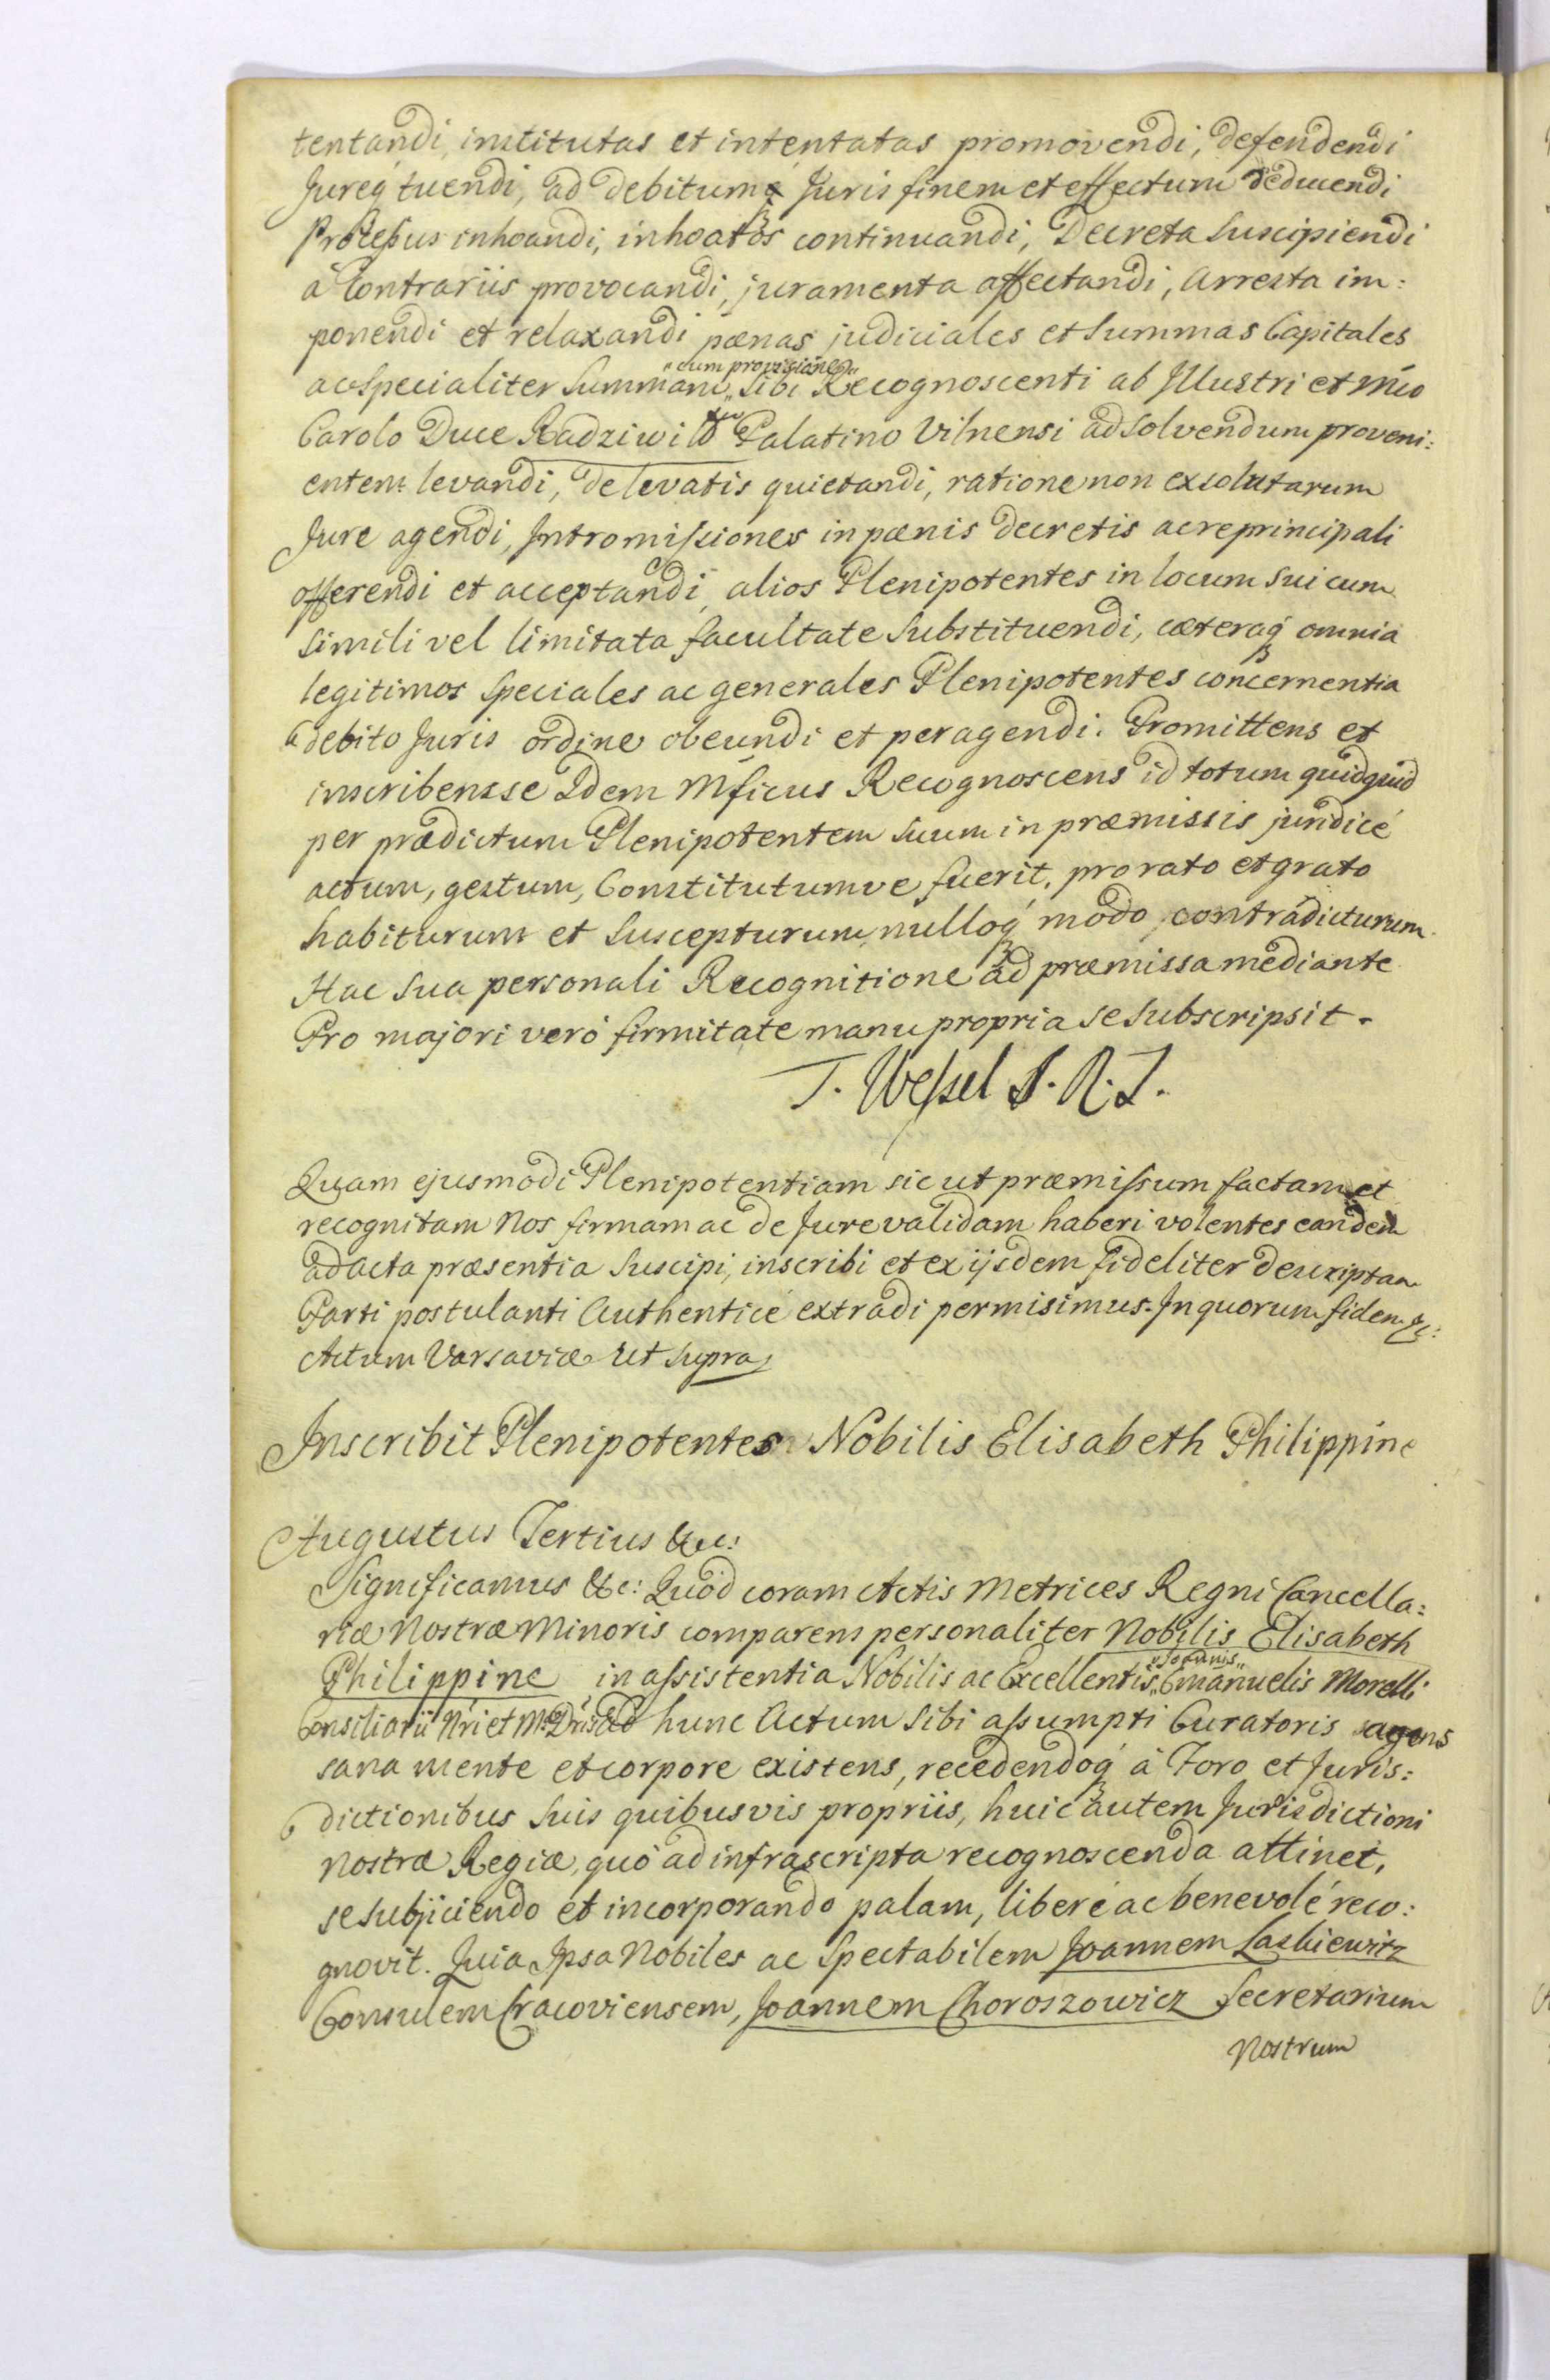 tentandi, institutas et intentatas promovendi, defendendi
Jureq́ tuendi, ad debitumq́ Juris finem et effectum deducendi
Processus inhoandi, inhoatos continuandi, Decreta suscipiendi
à Contrariis provocandi, juramenta affectandi, Arresta im:
ponendi et relaxandi pænas judiciales et summas Capitales
ac specialiter summam „cum provisione„ sibi Recognoscenti ab Illustri et Mfico
Carolo Duce Radziwiłł Palatino Vilnensi ad solvendum proveni:
entem levandi, de levatis quietandi, ratione non exsolutarum
Jure agendi, Intromissiones in pænis decretis ac re principali
offerendi et acceptandi, alios Plenipotentes in locum sui cum
simili vel limitata facultate substituendi, cæteraq́ omnia
legitimos speciales ac generales Plenipotentes concernentia
debito Juris ordine obeundi et peragendi. Promittens et
inscribens se Idem Mficus Recognoscens id totum quidquid
per prædictum Plenipotentem suum in præmissis juridicé
actum, gestum, Constitutumve fuerit, pro rato et grato
habiturum et suscepturum, nulloq́ modo contradicturum.
Hac sua personali Recognitione ad præmissa mediante
Pro majori veró firmitate manu propria se subscripsit.
T. Wessel S. R. T.
Quam ejusmodi Plenipotentiam sic ut præmissum factam et
recognitam Nos firmam ac de Jure validam haberi volentes eandem
ad acta præsentia suscipi, inscribi et ex ijsdem fideliter descriptam
Parti postulanti Authenticé extradi permisimus. In quorum fidem &c:
Actum Varsaviæ ut supra
Inscribit Plenipotentes Nobilis Elisabeth Philippine
Augustus Tertius &c:
Significamus &c: Quod coram Actis Metrices Regni Cancella:
riæ Nostræ Minoris comparens personaliter Nobilis Elisabeth
Philippine in assistentia Nobilis ac Excellentis „Joannis„ Emanuelis Morelli
Consiliarii Nri et M. Dris ad hunc Actum sibi assumpti Curatoris agens
sana mente et corpore existens, recedendoq́ à Foro et Juris:
dictionibus suis quibusvis propriis, huic autem Jurisdictioni
Nostræ Regiæ, quó ad infrascripta recognoscenda attinet,
se subjiciendo et incorporando palam, liberé ac benevolé reco:
gnovit. Quia Ipsa Nobiles ac Spectabilem Joannem Laskiewitz
Consulem Cracoviensem, Joannem Choroszowicz Secretarium
Nostrum